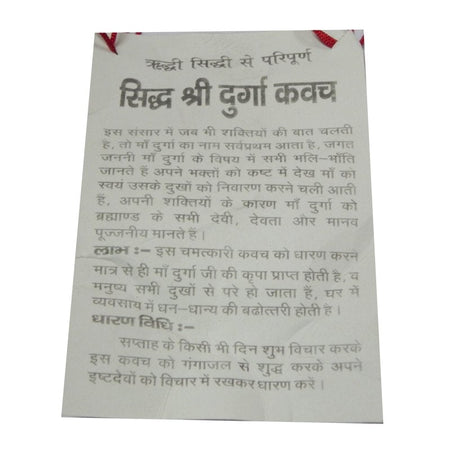 ऋद्धी सिद्धी से परिपूर्ण
सिद्ध श्री दुर्गा कवच
इस संसार में जब भी शक्तियों की बात चलती
है, तो माँ दुर्गा का नाम सर्वप्रथम आता है, जगत
जननी माँ दुर्गा के विषय में सभी भलि-भाँति
जानते हैं अपने भक्तों को कष्ट में देख माँ को
स्वयं उसके दुखों को निवारण करने चली आती
हैं, अपनी शक्तियों के कारण माँ दुर्गा को
ब्रह्माण्ड के सभी देवी, देवता और मानव
पूज्जनीय मानते हैं।
लाभ :– इस चमत्कारी कवच को धारण करन
मात्र से ही माँ दुर्गा जी की कृपा प्राप्त होती है, व
मनुष्य सभी दुखों से परे हो जाता हैं, घर में
व्यवसाय में धन-धान्य की बढोत्तरी होती है।
धारण विधि :–
सप्ताह के किसी भी दिन शुभ विचार करके
इस कवच को गंगाजल से शुद्ध करके अपने
इष्टदेवों को विचार में रखकर धारण करें।